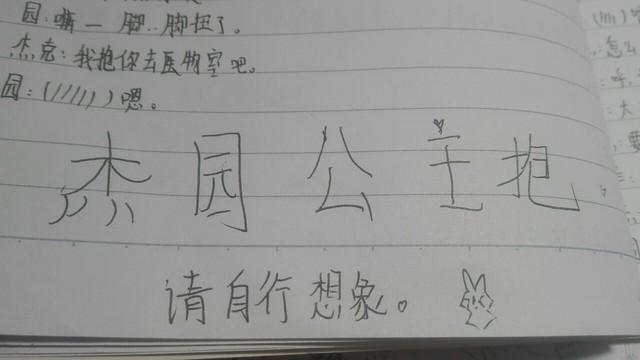 园:嘶一脚..脚扭了。
杰克:我抱你去医物室吧。
园:(/////)嗯。
杰园公主抱。
请自行想象。